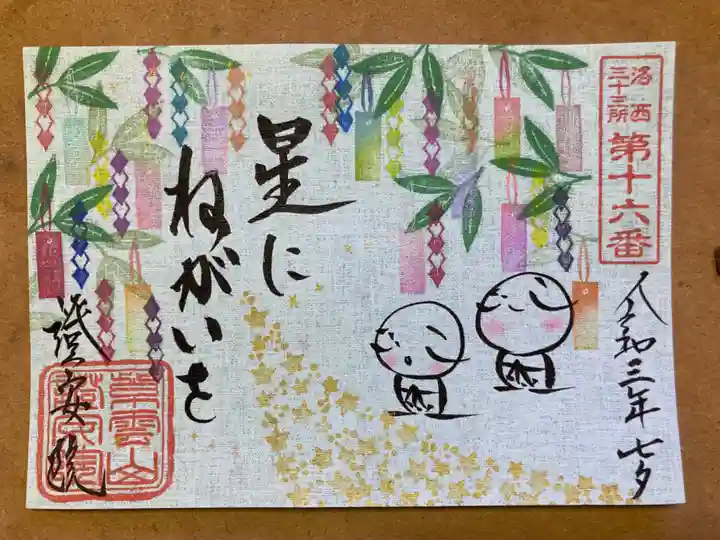 洛西
三十三所
第十六番
令和三年七夕
星に
ねがいを
證安院